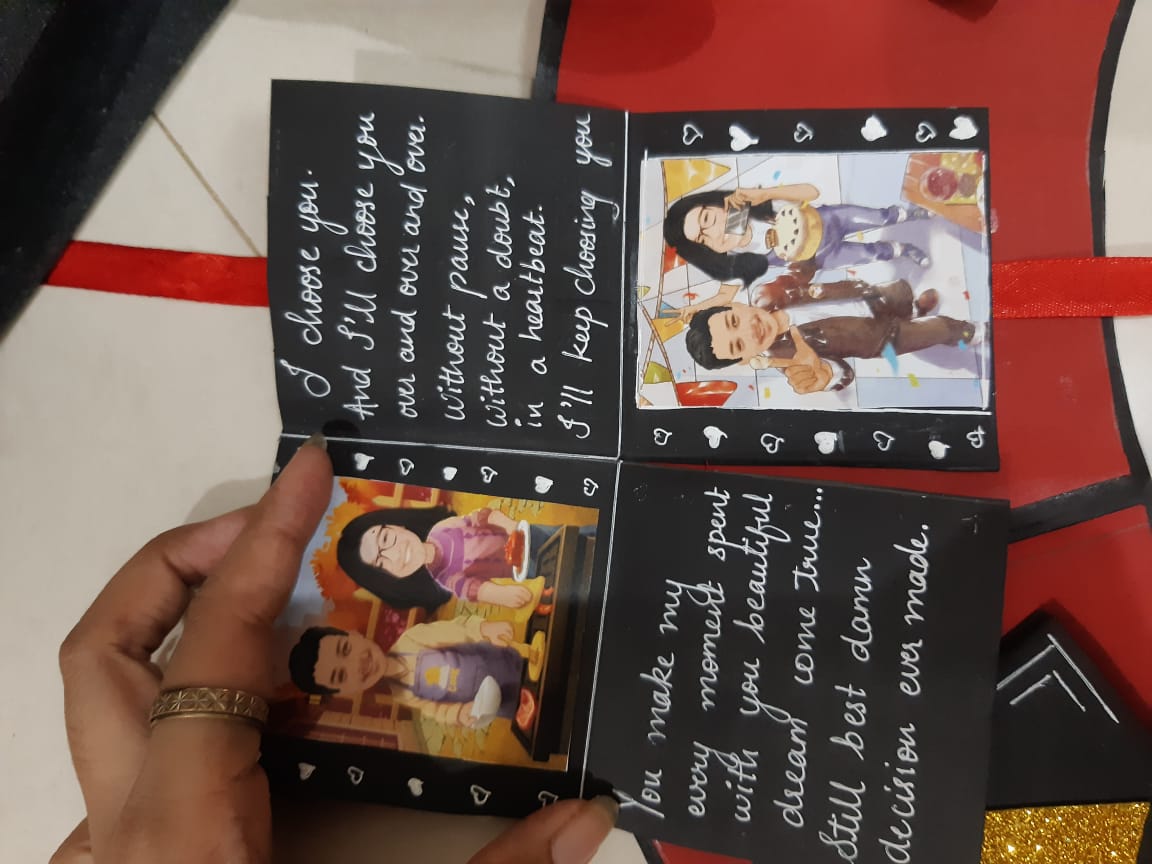 I choose you.
And I'll choose you
over and over and over.
Without pause,
Without a doubt,
in a heartbeat.
I'll keep choosing you
You make my
every moment spent
with you beautiful
dream come true...
Still best damn
decision ever made.